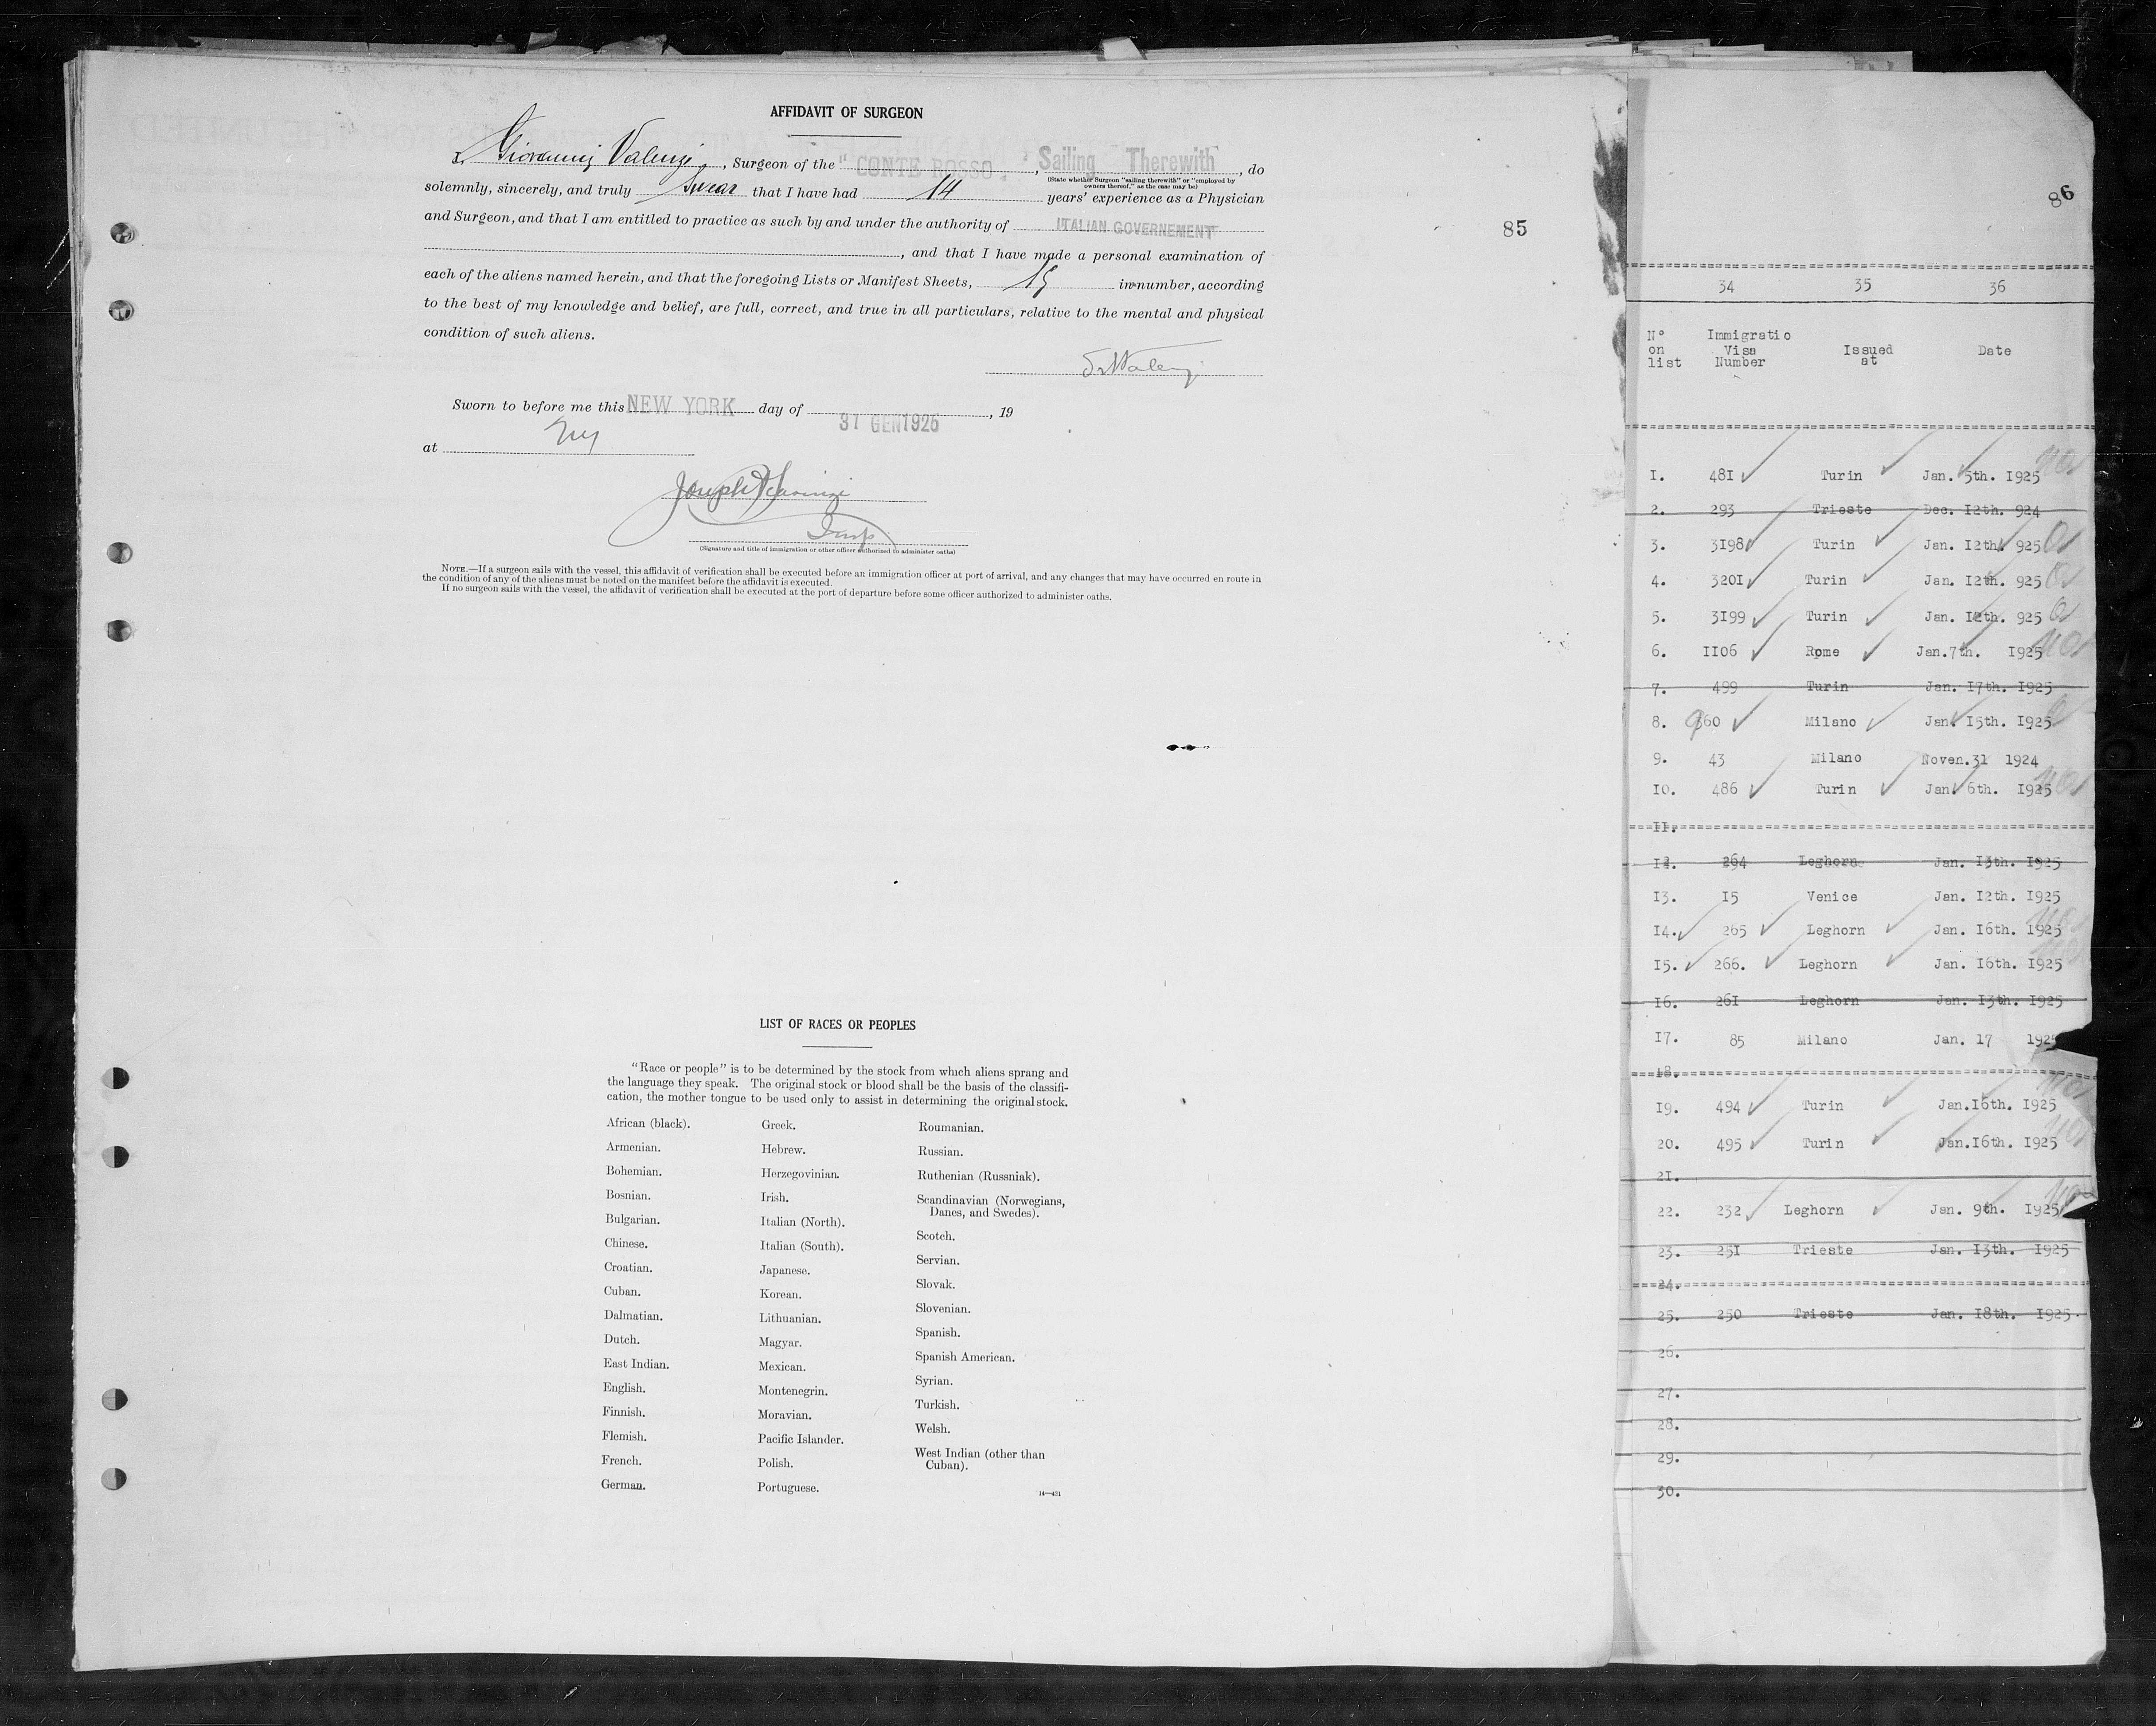 AFFIDAVIT OF SURGEON
I, Giovanni Valenzi, Surgeon of the "CONTE ROSSO", Sailing Therewith, do
(State whether Surgeon "sailing therewith" or "employed by
owners thereof," as the case may be)
solemnly, sincerely, and truly swear that I have had 14 years' experience as a Physician
and Surgeon, and that I am entitled to practice as such by and under the authority of ITALIAN GOVERNEMENT
, and that I have made a personal examination of
each of the aliens named herein, and that the foregoing Lists or Manifest Sheets, 15 in number, according
to the best of my knowledge and belief, are full, correct, and true in all particulars, relative to the mental and physical
condition of such aliens.
Sworn to before me this NEW YORK day of 31 GEN 1925, 19
at NY
Joseph
Insp
(Signature and title of immigration or other officer authorized to administer oaths)
NOTE.—If a surgeon sails with the vessel, this affidavit of verification shall be executed before an immigration officer at port of arrival, and any changes that may have occurred en route in
the condition of any of the aliens must be noted on the manifest before the affidavit is executed.
If no surgeon sails with the vessel, the affidavit of verification shall be executed at the port of departure before some officer authorized to administer oaths.
85
LIST OF RACES OR PEOPLES
"Race or people" is to be determined by the stock from which aliens sprang and
the language they speak. The original stock or blood shall be the basis of the classifi-
cation, the mother tongue to be used only to assist in determining the original stock.
African (black).
Armenian.
Bohemian.
Bosnian.
Bulgarian.
Chinese.
Croatian.
Cuban.
Dalmatian.
Dutch.
East Indian.
English.
Finnish.
Flemish.
French.
German.
Greek.
Hebrew.
Herzegovinian.
Irish.
Italian (North).
Italian (South).
Japanese.
Korean.
Lithuanian.
Magyar.
Mexican.
Montenegrin.
Moravian.
Pacific Islander.
Polish.
Portuguese.
Roumanian.
Russian.
Ruthenian (Russniak).
Scandinavian (Norwegians,
Danes, and Swedes).
Scotch.
Servian.
Slovak.
Slovenian.
Spanish.
Spanish American.
Syrian.
Turkish.
Welsh.
West Indian (other than
Cuban).
14—431
86
34 35 36
N° on list Immigratio Visa Number Issued at Date
1. 481 Turin Jan. 5th. 1925
2. 293 Trieste Dec. 12th. 924
3. 3198 Turin Jan. 12th. 925
4. 3201 Turin Jan. 12th. 925
5. 3199 Turin Jan. 12th. 925
6. 1106 Rome Jan.7th. 1925
7. 499 Turin Jan. 17th. 1925
8. 960 Milano Jan. 15th. 1925
9. 43 Milano Noven.31 1924
10. 486 Turin Jan. 6th. 1925
11.
12. 264 Leghorn Jan. 13th. 1925
13. 15 Venice Jan. 12th. 1925
14. 265 Leghorn Jan. 16th. 1925
15. 266. Leghorn Jan. 16th. 1925
16. 261 Leghorn Jan. 13th. 1925
17. 85 Milano Jan. 17 1925
18.
19. 494 Turin Jan.16th. 1925
20. 495 Turin Jan.16th. 1925
21.
22. 232 Leghorn Jan. 9th. 1925
23. 251 Trieste Jan. 13th. 1925
24.
25. 250 Trieste Jan. 18th. 1925
26.
27.
28.
29.
30.